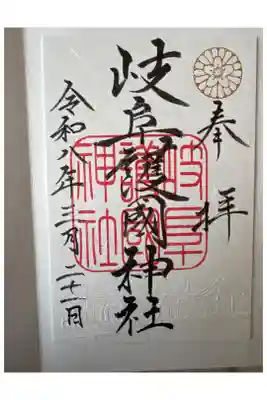 奉拝
岐阜護國神社
岐阜護國神社
令和八年三月二十一日